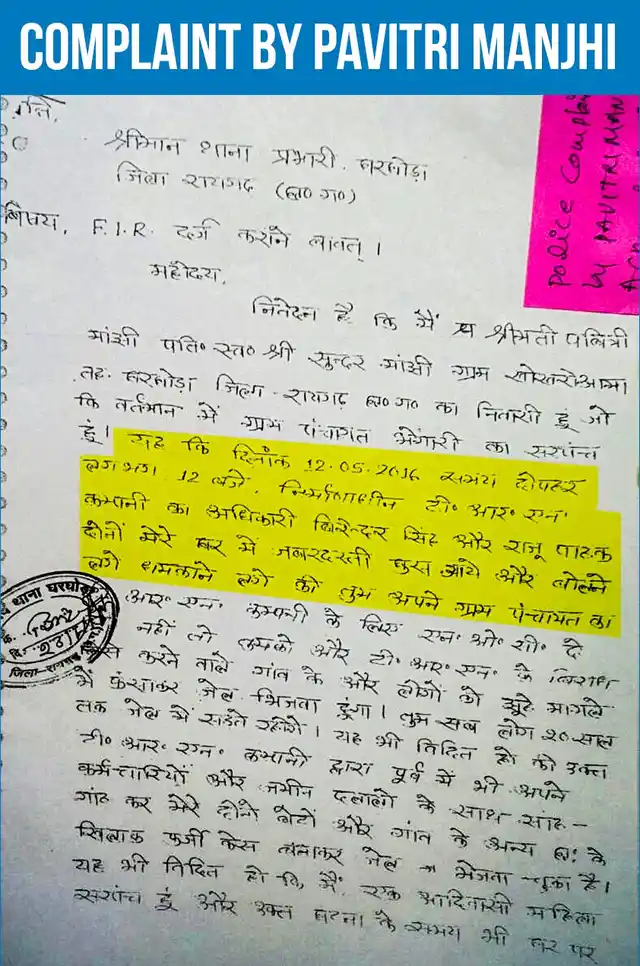 COMPLAINT BY PAVITRI MANJHI
प्रति,
श्रीमान थाना प्रभारी. घरघोड़ा
जिला रायगढ़ (छ०ग०)
विषय. F.I.R. दर्ज कराने बाबत्।
महोदय,
निवेदन है कि मैं श्रीमती पवित्री
मांझी पति० स्व० श्री सुन्दर मांझी ग्राम खोखरोआमा
तह. घरघोड़ा जिला-रायगढ़ छ०ग० का निवासी हूं जो
कि वर्तमान में ग्राम पंचायत भेंगारी का सरपंच
हूं। यह कि दिनांक 12.05.2016 समय दोपहर
लगभग 12 बजे. निर्माणाधीन टी० आर० एन०
कम्पनी का अधिकारी बिरेन्दर सिंह और राजू पाठक
दोनों मेरे घर में जबरदस्ती घुस आये और बोलने
लगे धमकाने लगे की तुम अपने ग्राम पंचायत का
आर० एन० कम्पनी के लिए एन० ओ० सी० दे
नहीं तो तुमको और टी० आर० एन० के खिलाफ
करने वाले गांव के और लोगों को झूठे मामले
में फंसाकर जेल भिजवा दूंगा। तुम सब लोग 20-साल
तक जेल में सड़ते रहोगे। यह भी विदित हो की उक्त
टी० आर० एन० कम्पनी द्वारा पूर्व में भी अपने
कर्मचारियों और जमीन दलालो के साथ साठ-
गांठ कर मेरे दोनो बेटों और गांव के अन्य छः के
खिलाफ फर्जी केस बनाकर जेल भेजवा चुका है।
यह भी विदित हो कि, मैं. एक आदिवासी महिला
सरपंच हूं और उक्त घटना के समय भी घर पर
Police Compla
by PAVITRI MAN
थाना घरघोड़ा
जिला-रायगढ़